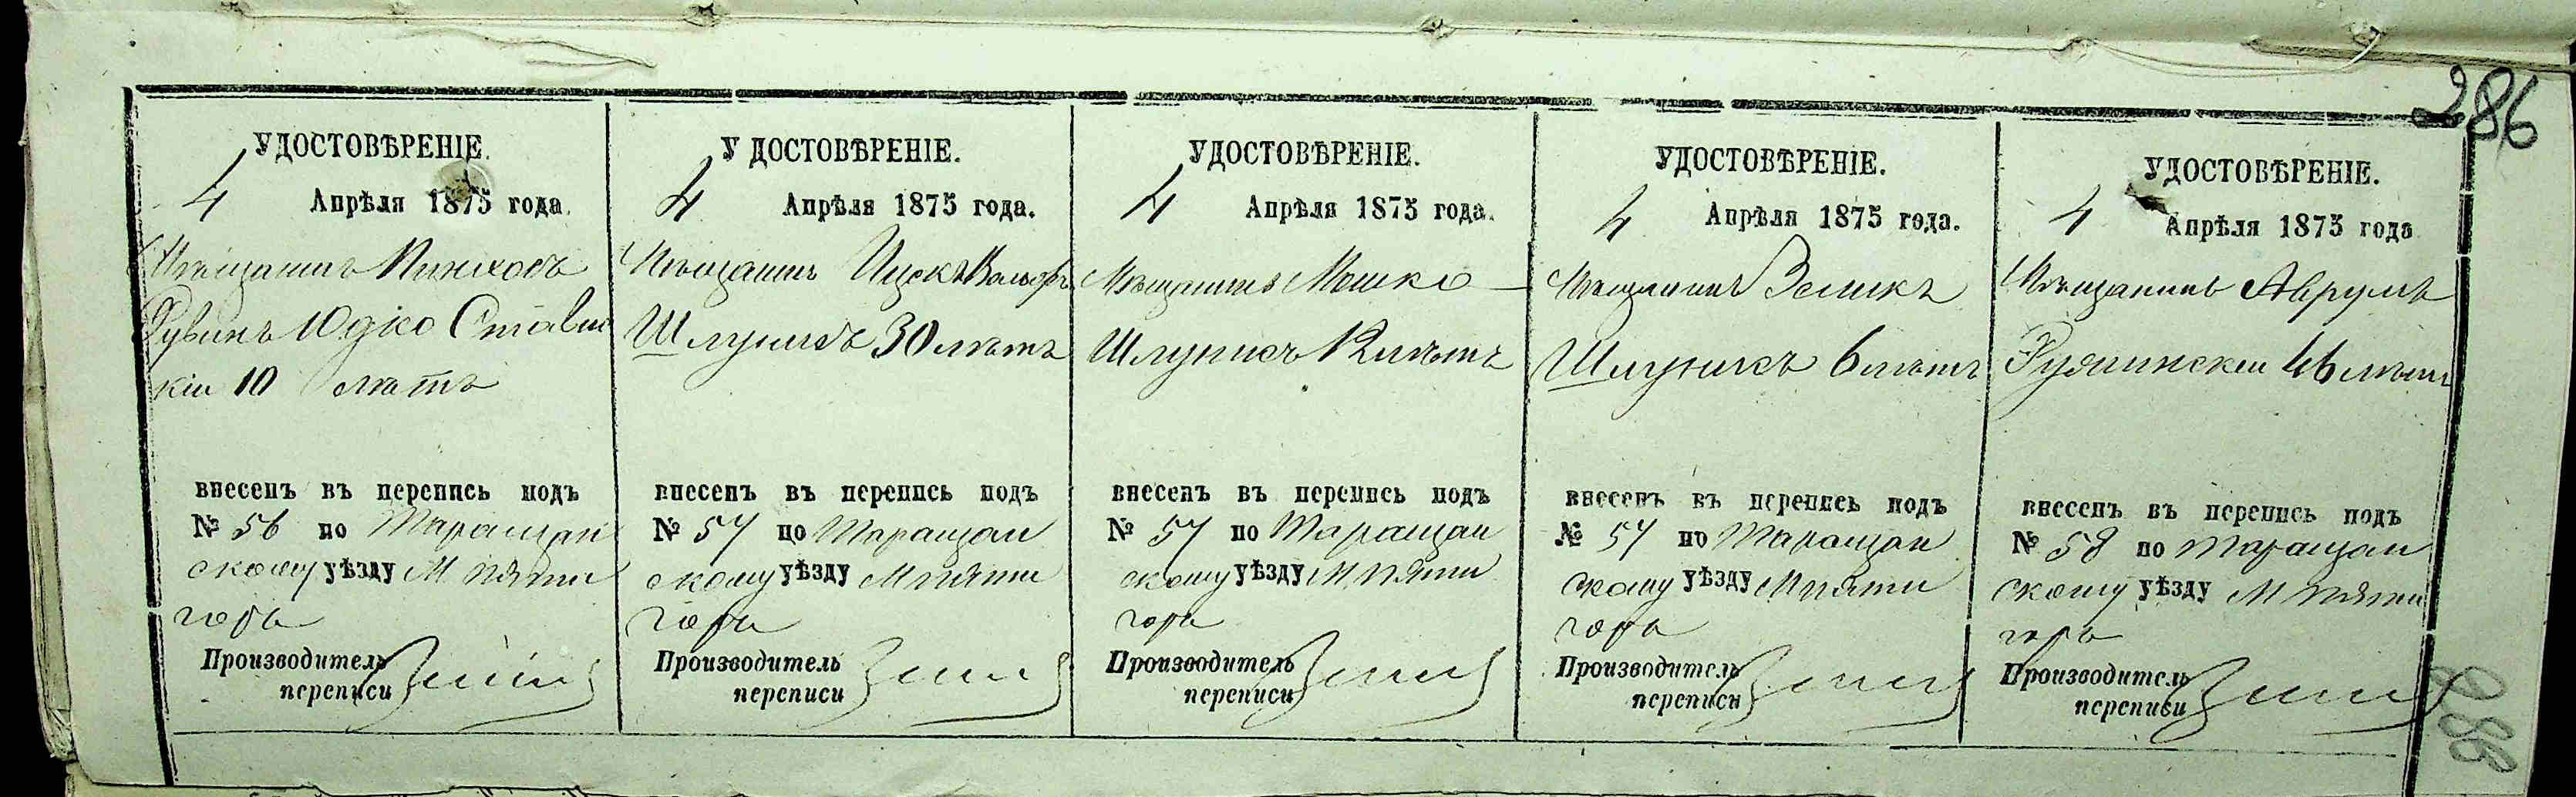 286
УДОСТОВѢРЕНІЕ.
4 Апрѣля 1875 года.
Мѣщанинъ Пинхосъ
Рувинъ Юдко Ставис
кіи 10 лѣтъ
внесенъ въ перепись подъ
№ 56 по Таращан
скому уѣзду М Пяти
горы
Производитель
переписи
УДОСТОВѢРЕНІЕ.
4 Апрѣля 1875 года.
Мѣщанинъ Ицекъ Вольфъ
Шлунисъ 30 лѣтъ
внесенъ въ перепись подъ
№ 57 по Таращан
скому уѣзду М Пяти
горы
Производитель
переписи
УДОСТОВѢРЕНІЕ.
4 Апрѣля 1875 года.
Мѣщанинъ Мошко
Шлунисъ лѣтъ
внесенъ въ перепись подъ
№ 57 по Таращан
скому уѣзду М Пяти
горы
Производитель
переписи
УДОСТОВѢРЕНІЕ.
4 Апрѣля 1875 года.
Мѣщанинъ Зеликъ
Шлунисъ 6 лѣтъ
внесенъ въ перепись подъ
№ 57 по Таращан
скому уѣзду М Пяти
горы
Производитель
переписи
УДОСТОВѢРЕНІЕ.
4 Апрѣля 1875 года
Мѣщанинъ Аврумъ
46 лѣтъ
внесенъ въ перепись подъ
№ 58 по Таращан
скому уѣзду М Пяти
горы
Производитель
переписи
285